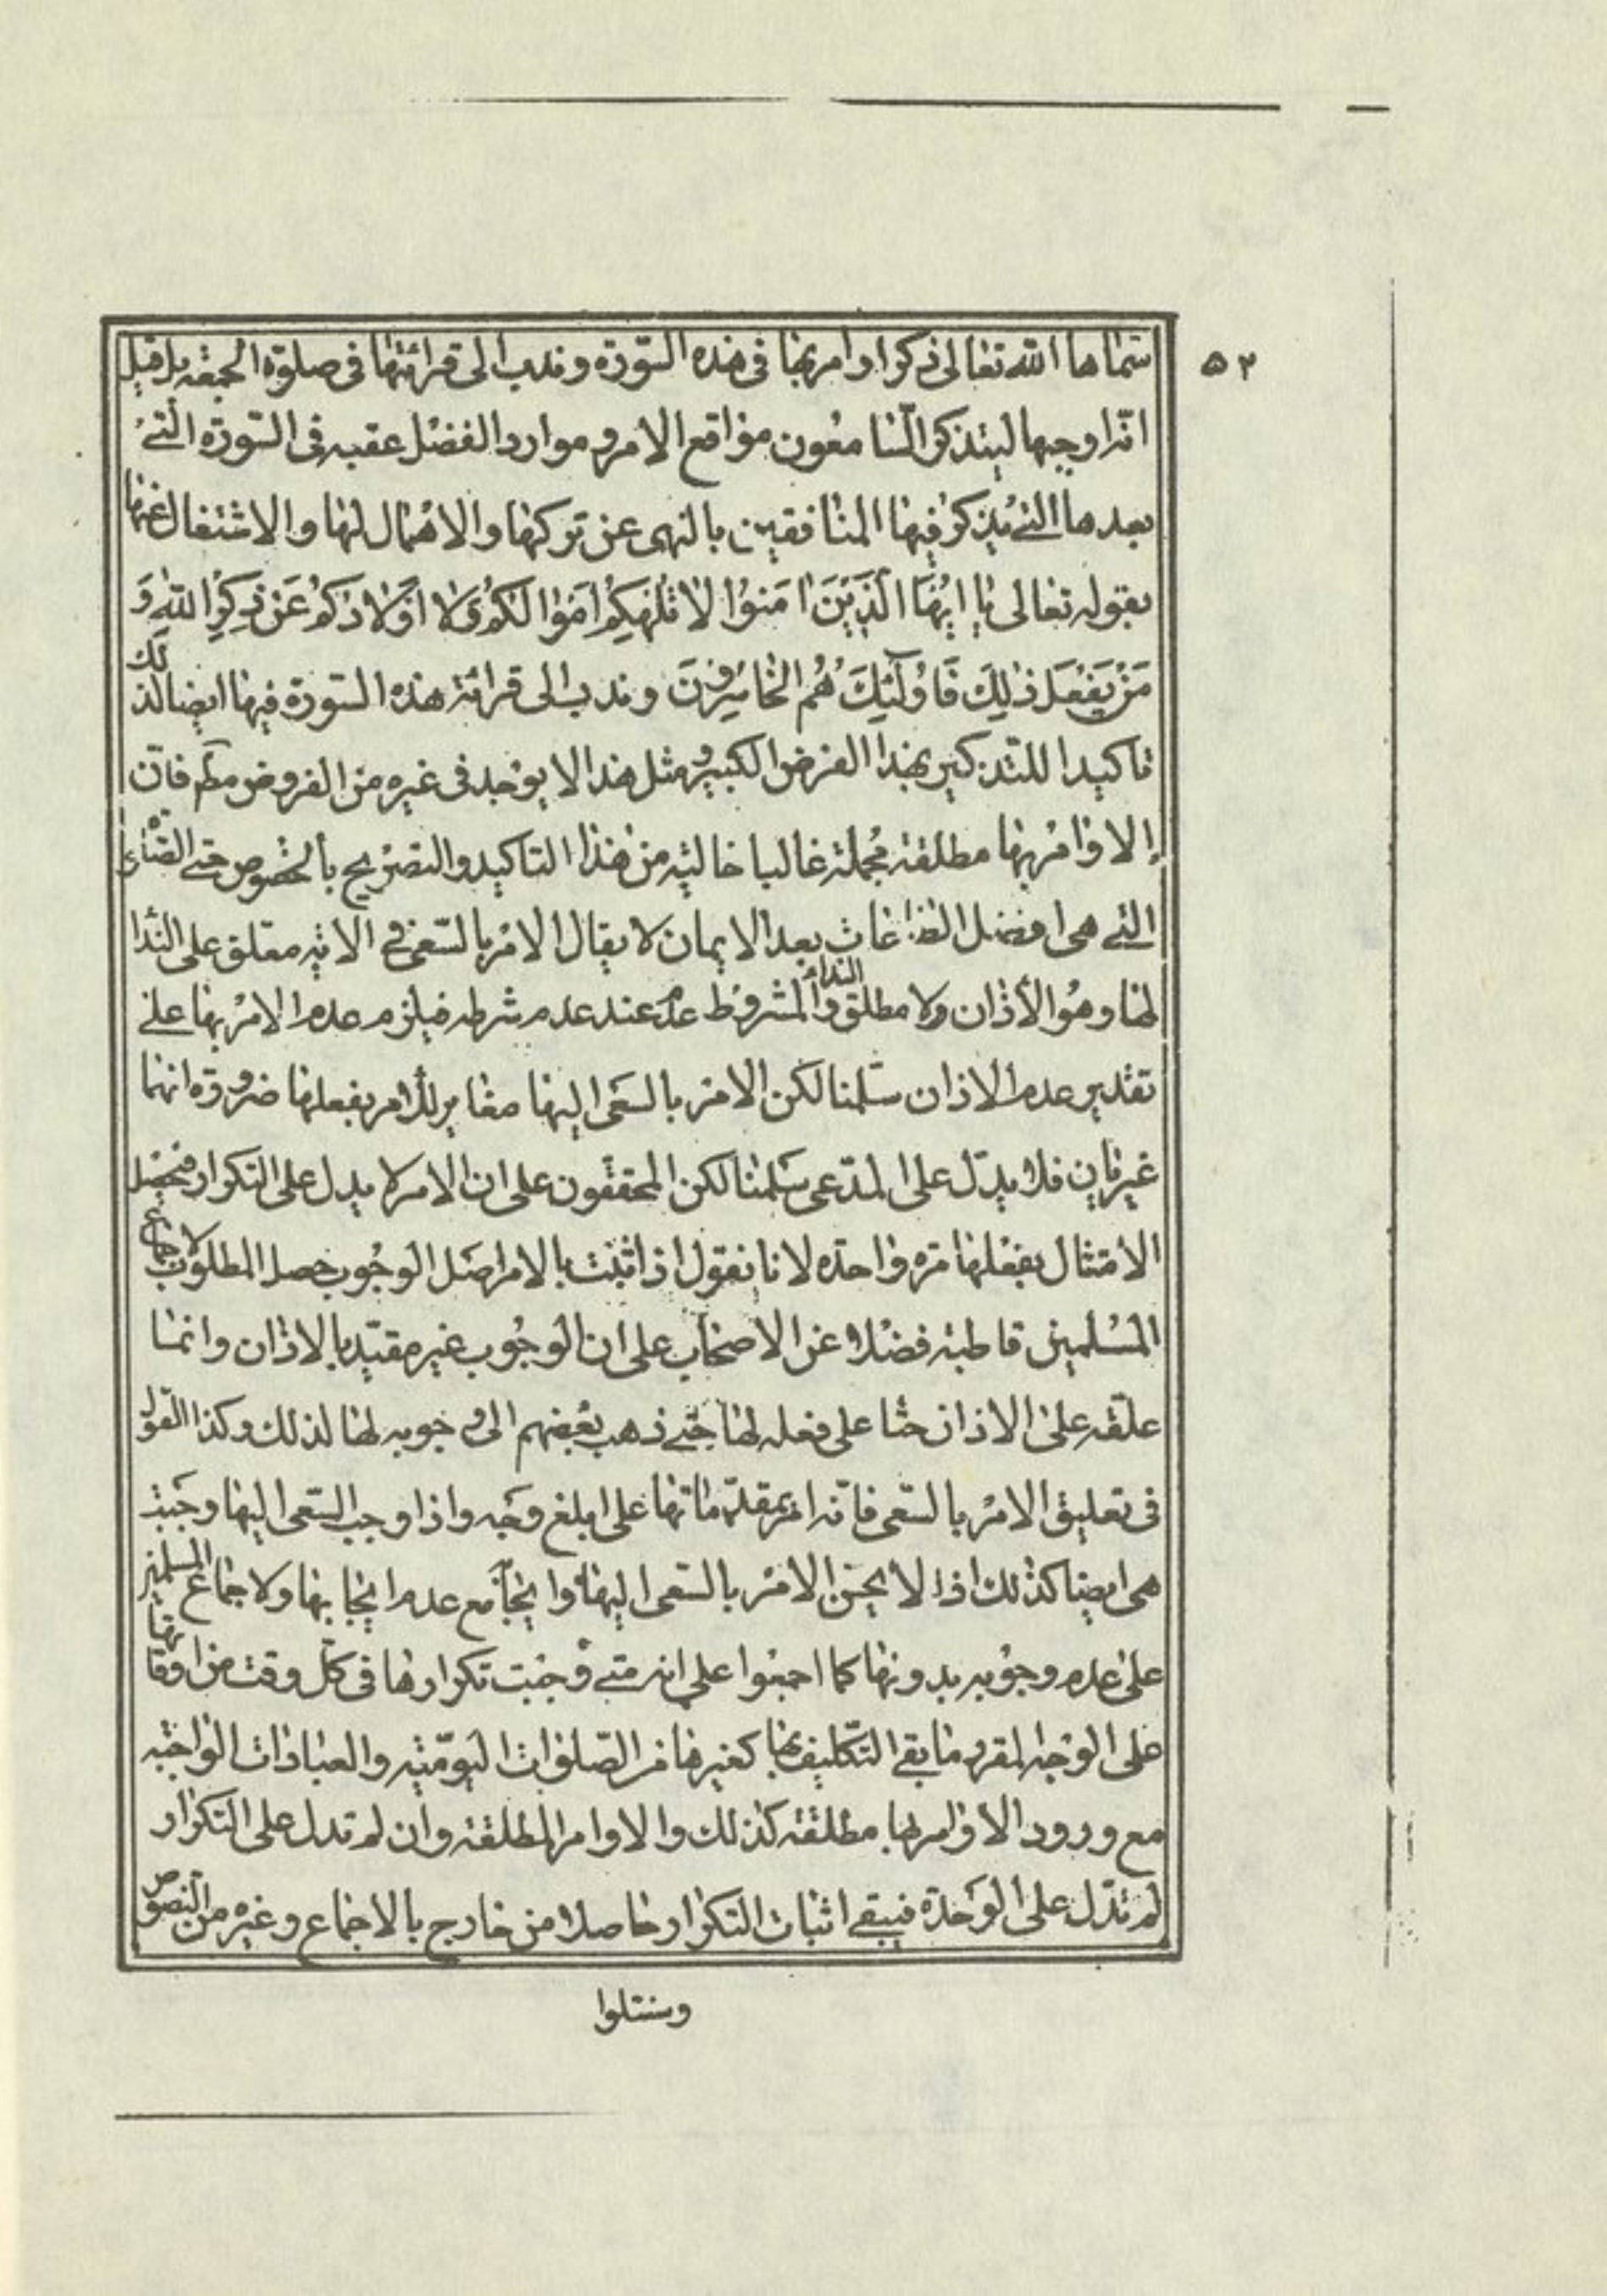 ۵۲
سماها الله تعالى ذكرا وامر بها فى هذه السورة وندب الى قرائتها فى صلوة الجمعة بل قيل
انه اوجبها ليتذكر السامعون مواقع الامر وموارد الفضل عقبه فى السورة التى
بعدها التى يذكر فيها المنافقين بالنهى عن تركها والاهمال لها والاشتغال عنها
بقوله تعالى يا ايها الَّذينَ امَنوُا لا تُلْهِكُمْ اَمْوالُكُمْ وَلا اَوْلادُكُمْ عَنْ ذِكْرِ اللهِ وَ
مَنْ يَفْعَلْ ذلِكَ فَاُولئِكَ هُمُ الْخاسِرُونَ وندب الى قرائة هذه السورة فيها ايضا لذلك
تاكيدا للتذكير بهذا الفرض الكبير ومثل هذا لا يوجد فى غيره من الفروض مطم فان
الاوامر بها مطلقة مجملة غالبا خالية من هذا التاكيد والتصريح بالخصوص حتى الصلوة
التى هى افضل الطاعات بعد الايمان لا يقال الامر بالسعى فى الاية معلق على الندا
لها وهو الأذان ولا مطلق النداء والمشروط عدم عند عدم شرطه فيلزم عدم الامر بها على
تقدير عدم الاذان سلمنا لكن الامر بالسعى اليها مغاير للامر بفعلها ضرورة انهما
غيران فلا يدل على المدعى سلمنا لكن المحققون على ان الامر لا يدل على التكرار فيحصل
الامتثال بفعلها مرة واحدة لانا نقول اذا ثبت بالامر اصل الوجوب حصل المطلوب لاجماع
المسلمين قاطبة فضلا عن الاصحاب على ان الوجوب غير مقيد بالاذان وانما
علقه على الاذان حثا على فعله لها حتى ذهب بعضهم الى وجوبه لها لذلك وكذا القول
فى تعليق الامر بالسعى فانه امر بمقدماتها على ابلغ وجه واذا وجب السعى اليها وجبت
هى ايضا كذلك اذ لا يحسن الامر بالسعى اليها وايجابه مع عدم ايجابها ولاجماع المسلمين
على عدم وجوبه بدونها كما اجمعوا على انه متى وجبت تكرارها فى كل وقت من اوقاتها
على الوجه المقرر ما بقى التكليف بها كغيرها من الصلوات اليومية والعبادات الواجبة
مع ورود الاوامر بها مطلقة كذلك والاوامر المطلقة وان لم تدل على التكرار
لم تدل على الوحدة فيبقى اثبات التكرار حاصلا من خارج بالاجماع وغيره من النصوص
وسنتلوا